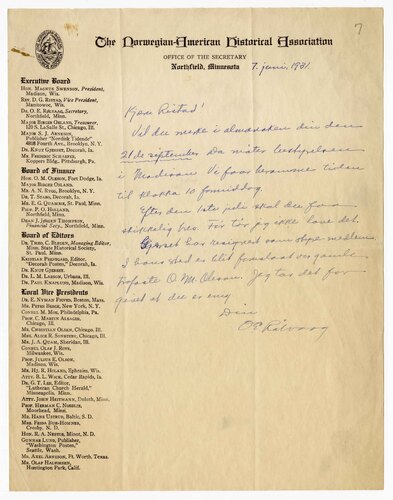 7
The Norwegian-American Historical Association
OFFICE OF THE SECRETARY
Northfield, Minnesota
7. juni, 1931.
Executive Board
HON. MAGNUS SWENSON, President,
Madison, Wis.
REV. D. G. RISTAD, Vice President,
Manitowoc, Wis.
DR. O. E. RÖLVAAG, Secretary,
Northfield, Minn.
MAJOR BIRGER OSLAND, Treasurer,
120 S. LaSalle St., Chicago, Ill.
MAJOR S. J. ARNESEN,
Publisher "Nordisk Tidende"
4808 Fourth Ave., Brooklyn, N. Y.
DR. KNUT GJERSET, Decorah, Ia.
MR. FREDERIC SCHAEFER,
Koppers Bldg., Pittsburgh, Pa.
Board of Finance
HON. O. M. OLESON, Fort Dodge, Ia.
MAJOR BIRGER OSLAND.
MR. A. N. RYGG, Brooklyn, N. Y.
DR. T. STABO, Decorah, Ia.
MR. E. G. QUAMME, St. Paul, Minn.
PROF. P. O. HOLLAND,
Northfield, Minn.
DEAN J. JØRGEN THOMPSON,
Financial Secy., Northfield, Minn.
Board of Editors
DR. THEO. C. BLEGEN, Managing Editor,
Minn. State Historical Society,
St. Paul, Minn.
KRISTIAN PRESTGARD, Editor,
"Decorah Posten," Decorah, Ia.
DR. KNUT GJERSET.
DR. L. M. LARSON, Urbana, Ill.
DR. PAUL KNAPLUND, Madison, Wis.
Local Vice Presidents
DR. E. NYMAN FIRVEN, Boston, Mass.
MR. PETER BERGE, New York, N. Y.
CONSUL M. MOE, Philadelphia, Pa.
PROF. C. MARTIN ALBAGES,
Chicago, Ill.
MR. CHRISTIAN OLSEN, Chicago, Ill.
MRS. ALICE R. SUNSTENG, Chicago, Ill.
MR. J. A. QUAM, Sheridan, Ill.
CONSUL OLAF J. ROVE,
Milwaukee, Wis.
PROF. JULIUS E. OLSON,
Madison, Wis.
MR. HJ. R. HOLAND, Ephraim, Wis.
ATTY. B. L. WICK, Cedar Rapids, Ia.
DR. G. T. LEE, Editor,
"Lutheran Church Herald,"
Minneapolis, Minn.
ATTY. JOHN HEITMANN, Duluth, Minn.
PROF. HERMAN C. NORDLIE,
Moorhead, Minn.
MR. HANS USTRUD, Baltic, S. D.
MRS. FRIDA BUE-HOMNES,
Crosby, N. D.
HON. R. A. NESTOS, Minot, N. D.
GUNNAR LUND, Publisher,
"Washington Posten,"
Seattle, Wash.
MR. AXEL ARNESON, Ft. Worth, Texas.
MR. OLAF HALVORSEN,
Huntington Park, Calif.
Kjære Ristad!
Vil du merke i almanakken din den
21 de september. Da møter bestyrelsen
i Madison. Vi får bestemme tiden
til klokka 10 formiddag.
Efter den 1ste juli skal du få en
skikkelig brev. Før tør jeg ikke love det.
Gjerset har resigneret som styremedlem.
I hans sted er blit foreslaat vor gamle
trofaste O. M. Oleson. Jeg tar det for
givet at du er enig.
Din
O E Rölvaag